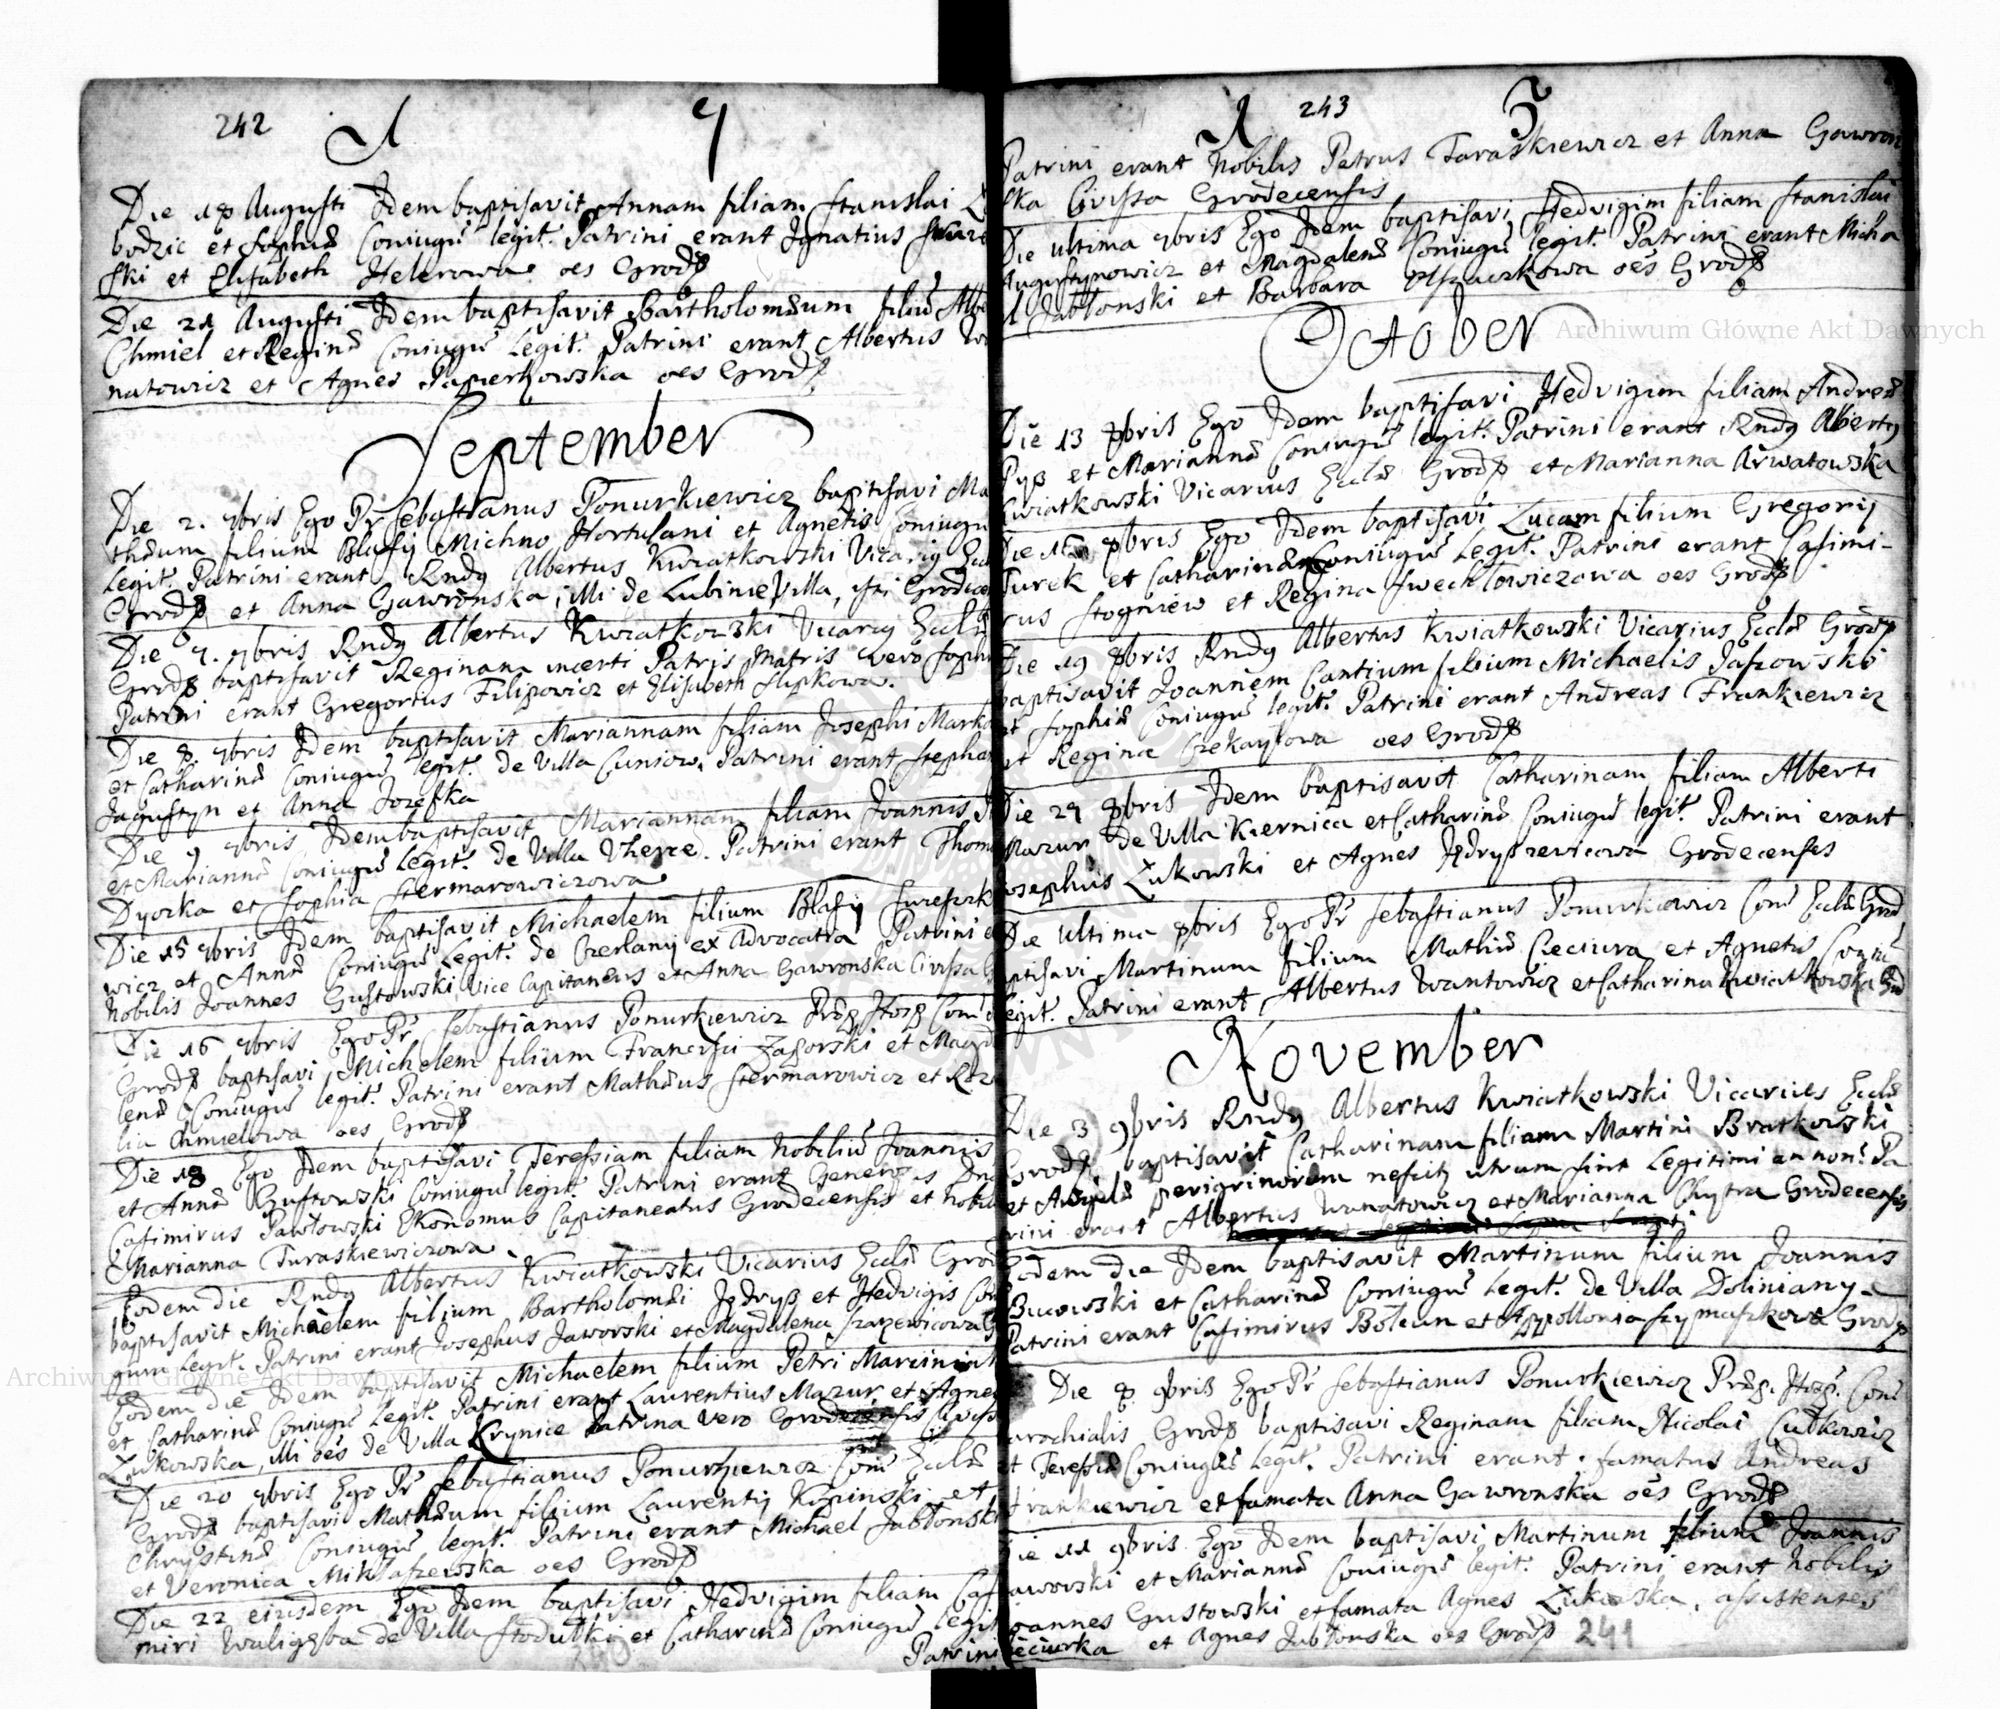 242
1 7
Die 18 Augusti Idem baptisavit Annam filiam Stanislai
bodzic et Sophiæ Coniugũ legit. Patrini erant Ignatius
ski et Elisabeth Helerowa oẽs Grod̃
Die 21 Augusti Idem baptisavit Bartholomæum filiũ Albe
Chmiel et Reginæ Coniugũ Legit. Patrini erant Albertus
natowicz et Agnes Papierkowska oẽs Grod̃
September
Die 2. 7bris Ego Pr Sebastianus Ponurkiewicz baptisavi Ma
thæum filium Blasij Michno Hortulani et Agnetis Coniugũ
Legit. Patrini erant Rndg Albertus Kwiatkowski Vicarig Eccl
Grod̃ et Anna Gawrońska, illi de Lubinie Villa, isti Grodecen
Die 7. 7bris Rndg Albertus Kwiatkowski Vicarig Ecclæ
Grod̃ baptisavit Reginam incerti Patris Matris vero Soph
Patrini erant Gregorius Filipowicz et Elisabeth Slipkowa.
Die 8. 7bris Idem baptisavit Mariannam filiam Josephi Mark
et Catharinæ Coniugũ legit. de Villa Cuniow. Patrini erant Stephan
Jagustyn et Anna Jozefka
Die 9 7bris Idem baptisavit Mariannam filiam Joannis
et Mariannæ Coniugũ Legit. de Villa Vherce. Patrini erant Thom
Dyozka et Sophia Stermarowiczowa
Die 15 7bris Idem baptisavit Michaelem filium Blasij
wicz et Annæ Coniugũ Legit. de Czerlany ex Advocatia Patrini e
Nobilis Joannes Gustowski Vice Capitaneus et Anna Gawronska Civissa
Die 16 7bris Ego Pr Sebastianus Ponurkiewicz Præp Hosp Com
Grod̃ baptisavi Michelem filium Francisci Zagorski et Magda
lenæ Coniugũ legit. Patrini erant Mathæus Stermarowicz et Roza
lia Chmielowa oẽs Grod̃
Die 18 Ego Idem baptisavi Teressiam filiam Nobiliũ Joannis
et Annæ Gustowski Coniugũ legit. Patrini erant Generos Dn
Casimirus Pawłowski Ekonomus Capitaneatus Grodecensis et Nobi
Marianna Turaskiewiczowa.
Eodem die Rndg Albertus Kwiatkowski Vicarius Ecclæ Grod
baptisavit Michàelem filium Bartholomæi Jędryß et Hedvigis Con
gum Legit. Patrini erant Josephus Jaworski et Magdalena
Eodem die Idem baptisavit Michaelem filium Petri Marcinink
et Catharinæ Coniugũ Legit. Patrini erant Laurentius Mazur et Agnes
Zukowska, illi oẽs de Villa Krynice Patrina vero Grodecensis Civissa
Die 20 7bris Ego Pr Sebastianus Ponurkiewicz Com Ecclæ
Grod̃ baptisavi Mathæum filium Laurentij Kopinski et
Chrystinæ Coniugũ legit. Patrini erant Michael Jabłonski
et Veronica Mikłaszewska oẽs Grod̃
Die 22 eiusdem Ego Idem baptisavi Hedvigim filiam Casi
miri Waligora de Villa Stodułki et Catharinæ Coniugũ legit
Patrini
243
1 5
Patrini erant Nobilis Petrus Taraskiewicz et Anna Gawron
ska Civissa Grodecensis
Die ultima 7bris Ego Idem baptisavi Hedvigim filiam Stanislai
Augustynowicz et Magdalenæ Coniugũ legit. Patrini erant Micha
el Jabłonski et Barbara Olszaczkowa oẽs Grod̃
October
Die 13 8bris Ego Idem baptisavi Hedvigim filiam Andreæ
Pyß et Mariannæ Coniugũ legit. Patrini erant Rndg Albertg
Kwiatkowski Vicarius Ecclæ Grod̃ et Marianna Arwatowska
Die 16 8bris Ego Idem baptisavi Lucam filium Gregorij
Turek et Catharinæ Coniugũ Legit. Patrini erant Casimi-
rus Stogniew et Regina Swechłowiczowa oẽs Grod̃
Die 19 8bris Rndg Albertus Kwiatkowski Vicarius Ecclæ Grod̃
baptisavit Joannem Cantium filium Michaelis Jaszowski
et Sophiæ Coniugũ legit. Patrini erant Andreas Frankiewicz
et Regina Czekayłowa oẽs Grod̃
Die 29 8bris Idem baptisavit Catharinam filiam Alberti
Mazur de Villa Kiernica et Catharinæ Coniugũ legit. Patrini erant
Josephus Zukowski et Agnes Jędryszewiczowa Grodecenses
Die ultima 8bris Ego Pr Sebastianus Ponurkiewicz Com Ecclæ Grod
baptisavi Martinum filium Mathiæ Cieciura et Agnetis Coniu
legit. Patrini erant Albertus Iwantowicz et Catharina Kwiatkowska Grod
November
Die 3 9bris Rndg Albertus Kwiatkowski Vicarius Ecclæ
Grod̃ baptisavit Catharinam filiam Martini Bratkowski
et peregrinorum nescitz utrum sint Legitimi an non. Pa
trini erant Albertus Iwanatowicz et Marianna Chytra Grodecenses
Eodem die Idem baptisavit Martinum filium Joannis
Bucowski et Catharinæ Coniugũ Legit. de Villa Doliniany.
Patrini erant Casimirus Bolean et Appollonia Szymaszkowa Grod̃
Die 8 9bris Ego Pr Sebastianus Ponurkiewicz Præp. Hosp. Com
Parochialis Grod̃ baptisavi Reginam filiam Nicolai Cułkowicz
et Teressiæ Coniugũ Legit. Patrini erant famatus Andreas
Frankiewicz et famata Anna Gawronska oẽs Grod̃
Die 11 9bris Ego Idem baptisavi Martinum filium Joannis
Jaworski et Mariannæ Coniugũ legit. Patrini erant Nobilis
Joannes Gustowski et famata Agnes Zukowska, assistentes
Cieciurka et Agnes Jabłonska oẽs Grod̃ 241
Archiwum Główne Akt Dawnych
Archiwum Główne Akt Dawnych